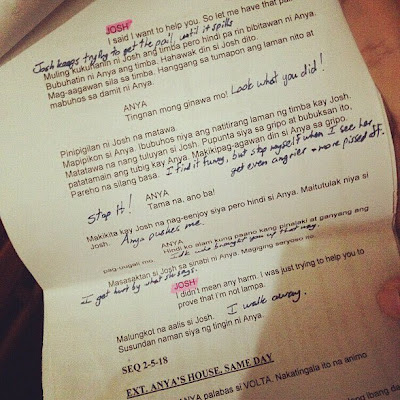 JOSH
I said I want to help you. So let me have that pail.
Josh keeps trying to get the pail, until it spills
Muling kukuhanin ni Josh ang timba pero hindi pa rin bibitawan ni Anya.
Bubuhatin ni Anya ang timba. Hahawak din si Josh dito.
Mag-aagawan sila sa timba. Hanggang sa tumapon ang laman nito at
mabuhos sa damit ni Anya.
ANYA
Tingnan mong ginawa mo! Look what you did!
Pinipigilan ni Josh na matawa.
Mapipikon si Anya. Ibubuhos niya ang natitirang laman ng timba kay Josh.
Matatawa na nang tuluyan si Josh. Pupunta siya sa gripo at bubuksan ito,
patatamain ang tubig kay Anya. Makikipag-agawan din si Anya sa gripo.
Pareho na silang basa. I find it funny, but stop myself when I see her
get even angrier + more pissed off.
ANYA
Stop it! Tama na, ano ba!
Makikita kay Josh na nag-eenjoy siya pero hindi si Anya. Maitutulak niya si
Josh. Anya pushes me.
ANYA
Hindi ko alam kung paano kang pinalaki at ganyang ang
pag-uugali mo. Idk who brought you up that way.
Masasaktan si Josh sa sinabi ni Anya. Magiging seryoso ito.
I get hurt by what she says.
JOSH
I didn't mean any harm. I was just trying to help you to
prove that I'm not lampa.
Malungkot na aalis si Josh. I walk away.
Susundan naman siya ng tingin ni Anya.
SEQ 2-5-18
EXT. ANYA'S HOUSE, SAME DAY
ANYA palabas si VOLTA. Nakatingala ito na animo